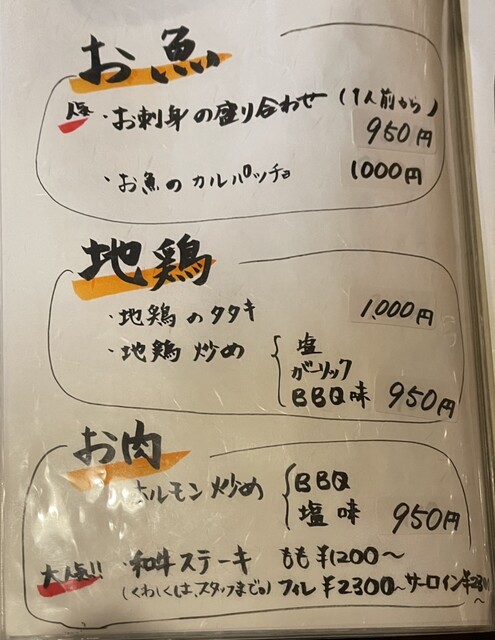 お魚
人気 ・お刺身の盛り合わせ (1人前から)
950円
・お魚のカルパッチョ 1000円
地鶏
・地鶏のタタキ 1,000円
・地鶏炒め { 塩
ガーリック
BBQ味 950円
お肉
ホルモン炒め { BBQ
塩味 950円
大人気!! ・和牛ステーキ もも¥1200〜
(くわしくは、スタッフまで。) フィレ¥2300〜 サーロイン